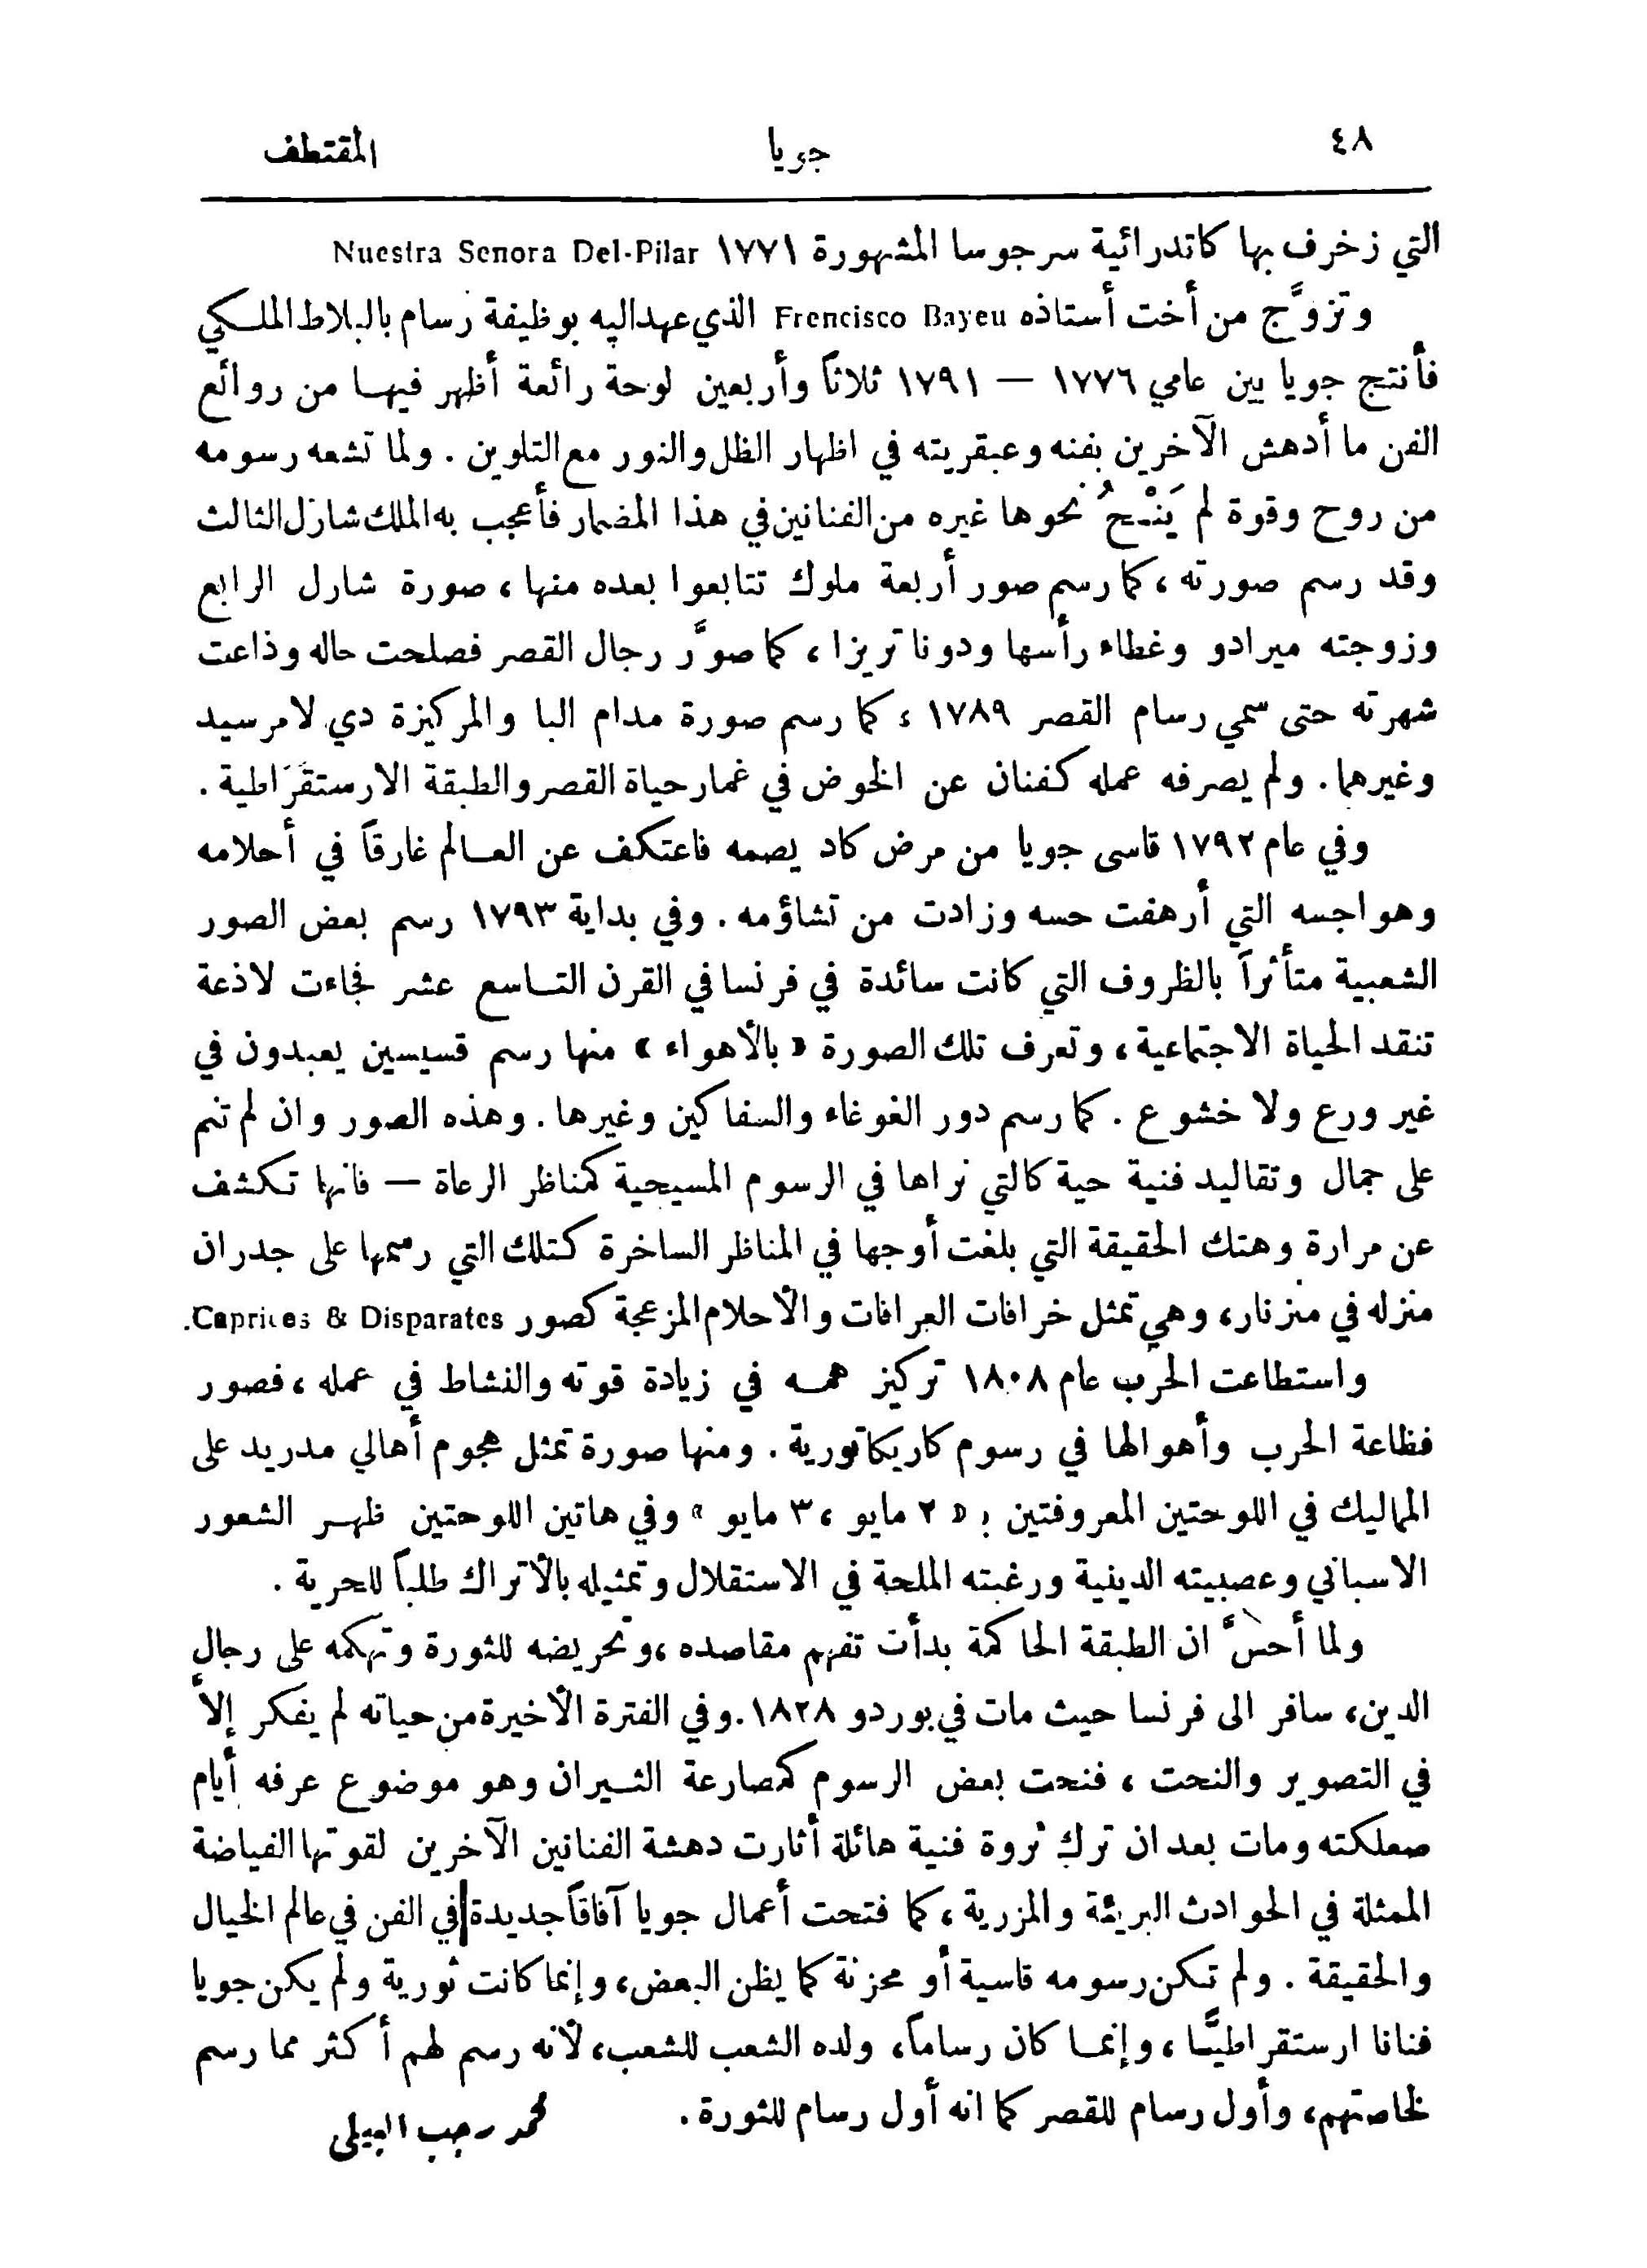 ٤٨ جويا المقتطف
التي زخرف بها كاتدرائية سرجوسا المشهورة ١٧٧١ Nuestra Senora Del-Pilar
وتزوَّج من أخت أستاذه Frencisco Bayeu الذي عهد اليه بوظيفة رسام بالبلاط الملكي
فأنتج جويا بين عامي ١٧٧٦ — ١٧٩١ ثلاثاً وأربعين لوحة رائعة أظهر فيها من روائع
الفن ما أدهش الآخرين بفنه وعبقريته في اظهار الظل والنور مع التلوين . ولما تشعه رسومه
من روح وقوة لم يَنْحُ نحوها غيره من الفنانين في هذا المضمار فأعجب به الملك شارل الثالث
وقد رسم صورته ، كما رسم صور أربعة ملوك تتابعوا بعده منها ، صورة شارل الرابع
وزوجته ميرادو وغطاء رأسها ودونا تريزا ، كما صوَّر رجال القصر فصلحت حاله وذاعت
شهرته حتى سمي رسام القصر ١٧٨٩ ، كما رسم صورة مدام البا والمركيزة دي لامرسيد
وغيرهما . ولم يصرفه عمله كفنان عن الخوض في غمار حياة القصر والطبقة الارستقراطية .
وفي عام ١٧٩٢ قاسى جويا من مرض كاد يصمه فاعتكف عن العالم غارقاً في أحلامه
وهواجسه التي أرهفت حسه وزادت من تشاؤمه . وفي بداية ١٧٩٣ رسم بعض الصور
الشعبية متأثراً بالظروف التي كانت سائدة في فرنسا في القرن التاسع عشر فجاءت لاذعة
تنقد الحياة الاجتماعية ، وتعرف تلك الصورة « بالأهواء » منها رسم قسيسين يعبدون في
غير ورع ولا خشوع . كما رسم دور الغوغاء والسفاكين وغيرها . وهذه الصور وان لم تنم
على جمال وتقاليد فنية حية كالتي نراها في الرسوم المسيحية كمناظر الرعاة — فانها تكشف
عن مرارة وهتك الحقيقة التي بلغت أوجها في المناظر الساخرة كتلك التي رسمها على جدران
منزله في منزنار ، وهي تمثل خرافات العرافات والأحلام المزعجة كصور Caprices & Disparates.
واستطاعت الحرب عام ١٨٠٨ تركيز همه في زيادة قوته والنشاط في عمله ، فصور
فظاعة الحرب وأهوالها في رسوم كاريكاتورية . ومنها صورة تمثل هجوم أهالي مدريد على
المماليك في اللوحتين المعروفتين بـ « ٢ مايو ، ٣ مايو » وفي هاتين اللوحتين ظهر الشعور
الاسباني وعصبيته الدينية ورغبته الملحة في الاستقلال وتمثيله بالأتراك طلباً للحرية .
ولما أحسَّ ان الطبقة الحاكمة بدأت تفهم مقاصده ، وتحريضه للثورة وتهكمه على رجال
الدين ، سافر الى فرنسا حيث مات في بوردو ١٨٢٨ . وفي الفترة الأخيرة من حياته لم يفكر إلاَّ
في التصوير والنحت ، فنحت بعض الرسوم كمصارعة الثيران وهو موضوع عرفه أيام
صعلكته ومات بعد ان ترك ثروة فنية هائلة أثارت دهشة الفنانين الآخرين لقوتها الفياضة
الممثلة في الحوادث البريئة والمزرية ، كما فتحت أعمال جويا آفاقاً جديدة في الفن في عالم الخيال
والحقيقة . ولم تكن رسومه قاسية أو محزنة كما يظن البعض ، وإنما كانت ثورية ولم يكن جويا
فنانا ارستقراطيًّا ، وإنما كان رساماً ، ولده الشعب للشعب ، لأنه رسم لهم أكثر مما رسم
لخاصتهم ، وأول رسام للقصر كما انه أول رسام للثورة . محمد رجب البيلى